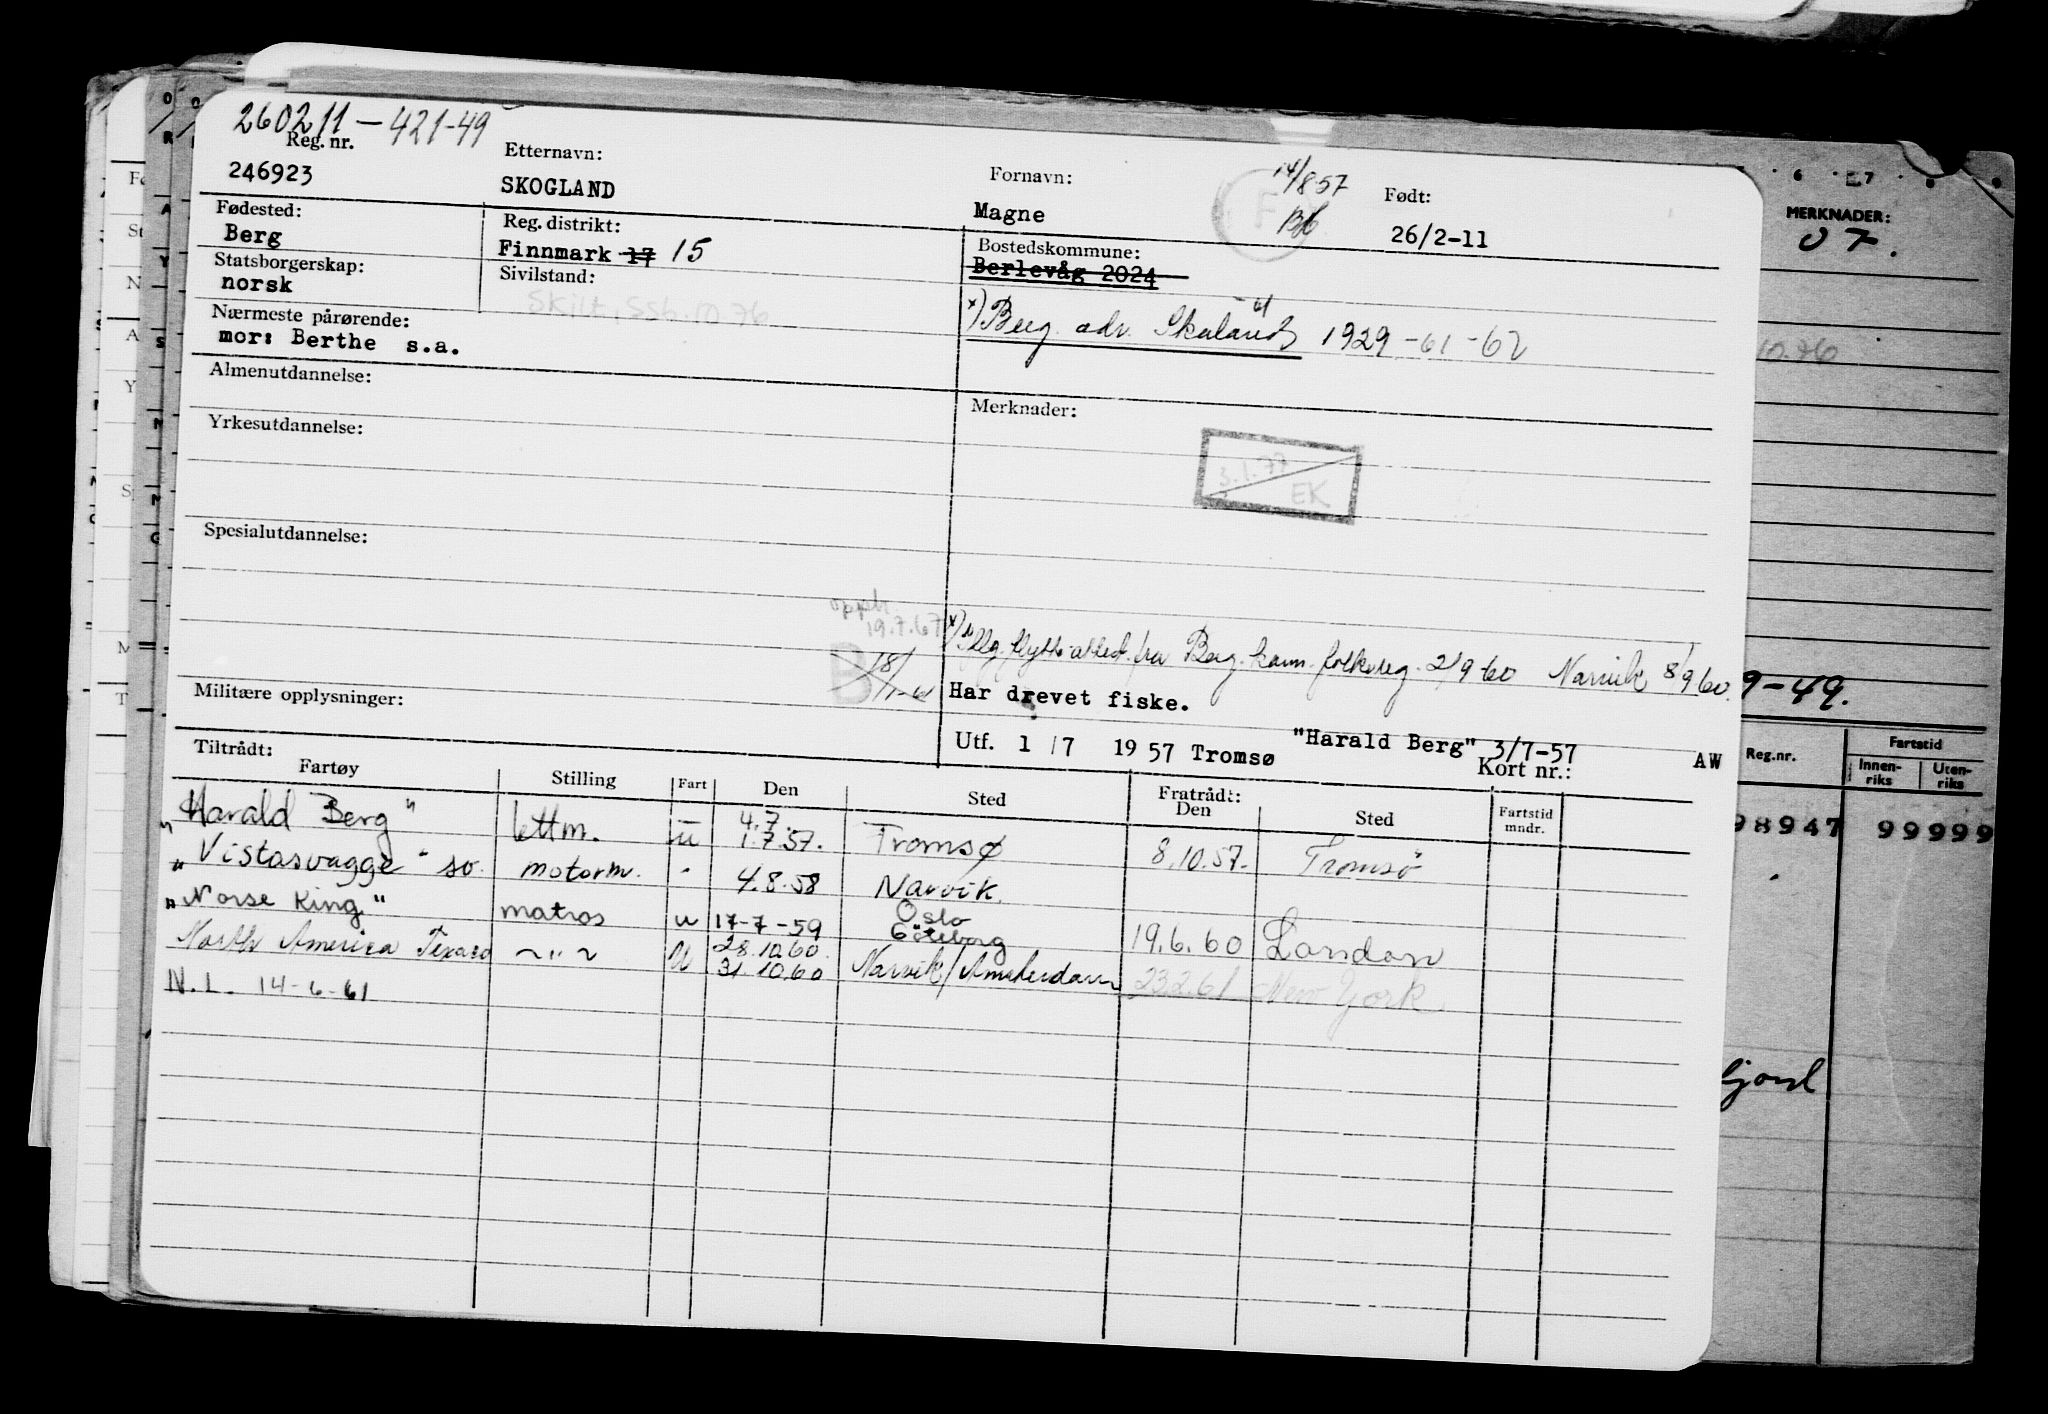 260211-421-49
Reg. nr.
246923
Etternavn:
SKOGLAND
Fornavn:
Magne
14/8.57
Født:
26/2-11
Fødested:
Berg
Reg. distrikt:
Finnmark 17 15
Bostedskommune:
Berlevåg 2024
Statsborgerskap:
norsk
Sivilstand:
Skilt, SSb. 10.76
x) Berg adr. Skaland 1929-61-62
Nærmeste pårørende:
mor: Berthe s.a.
Almenutdannelse:
Merknader:
Yrkesutdannelse:
3.1.77
EK
Spesialutdannelse:
opph.
19.7.67
x) flytte fra Berg folkereg. 2/9 60 Narvik 8/9 60.
B 18/11-61
Har drevet fiske.
Militære opplysninger:
Utf. 1/7 1957 Tromsø "Harald Berg" 3/7-57 AW
Kort nr.:
Tiltrådt:
Fartøy Stilling Fart Den Sted Fratrådt: Den Sted Fartstid mndr.
"Harald Berg" lettm. u 4.7. 1.7.57. Tromsø 8.10.57. Tromsø
"Vistasvagge" sv. motorm. " 4.8.58 Narvik.
"Norse King" matros u 17-7-59 Oslo Göteborg 19.6.60 London
North America Texaco ~"~ U 28.10.60. 31.10.60 Narvik/Amsterdam 23.2.61 New York
N.L. 14-6-61
MERKNADER:
07.
10.76
9-49.
Reg.nr.
Fartstid
Innen-riks
Uten-riks
98947 99999
fjord